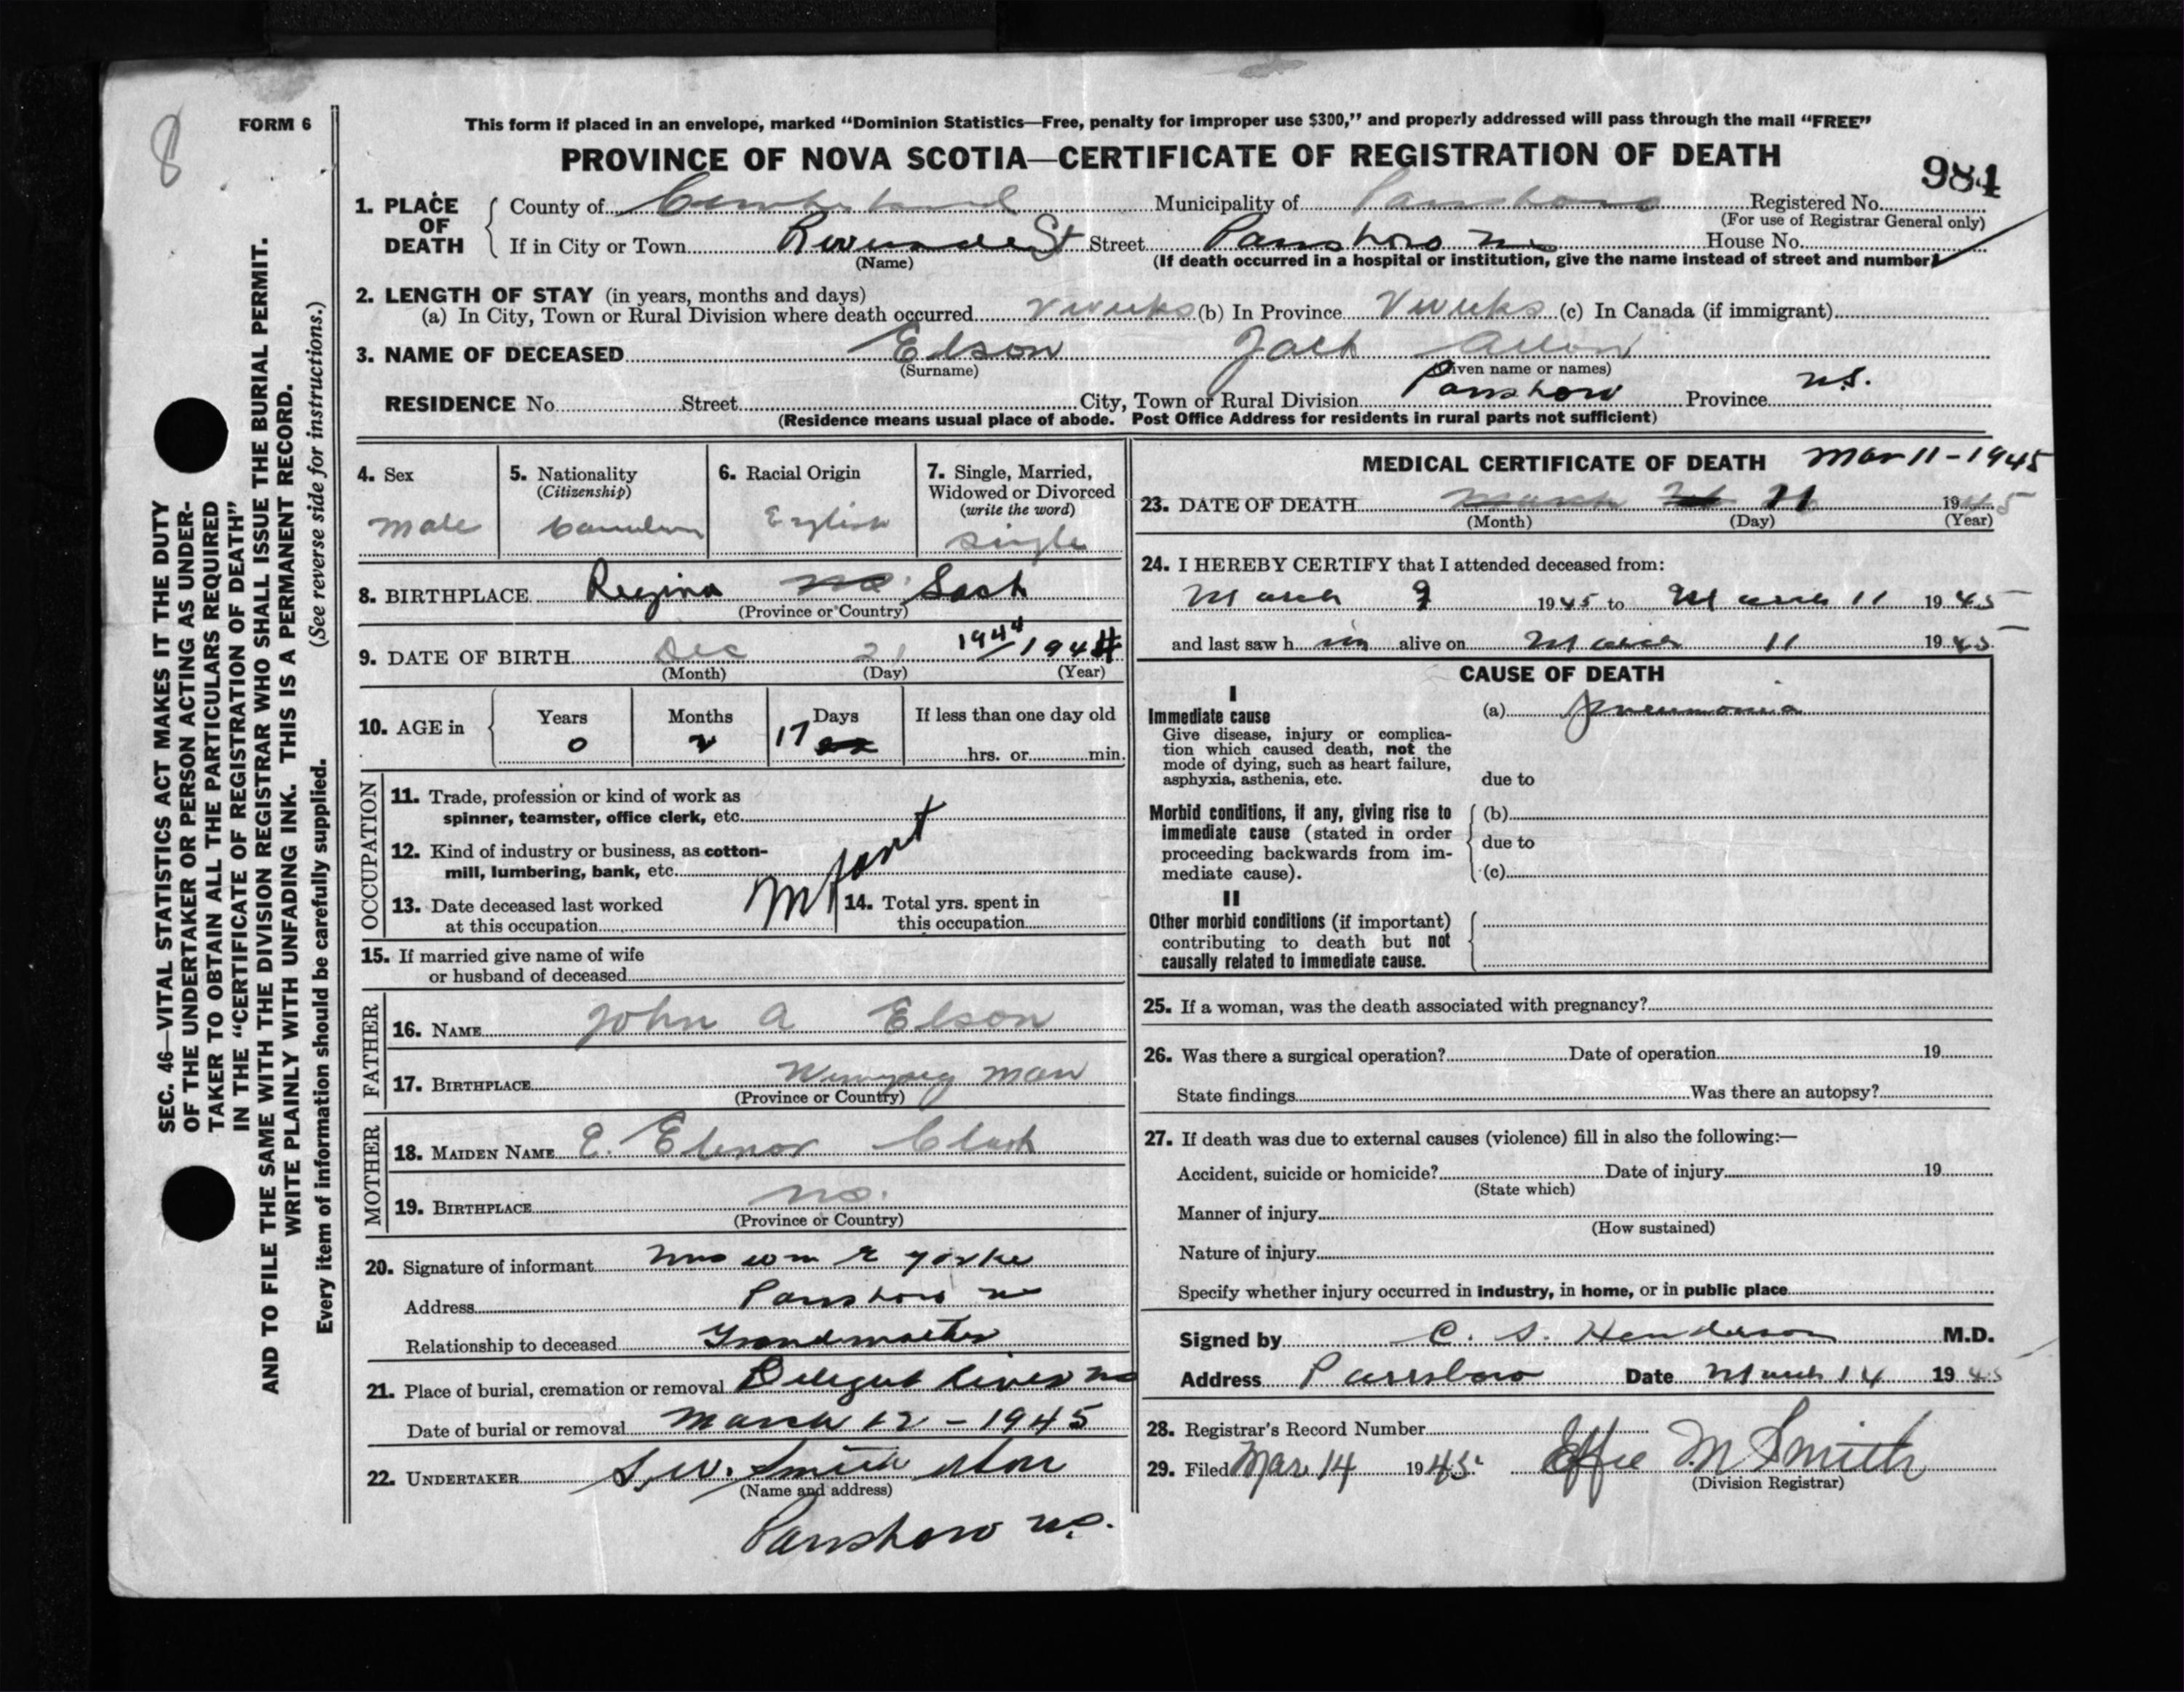 8
FORM 6
This form if placed in an envelope, marked "Dominion Statistics—Free, penalty for improper use $300," and properly addressed will pass through the mail "FREE"
PROVINCE OF NOVA SCOTIA—CERTIFICATE OF REGISTRATION OF DEATH
984
1. PLACE OF DEATH
County of Cumberland Municipality of Parrsboro Registered No.
(For use of Registrar General only)
If in City or Town Riverside St Street Parrsboro NS House No.
(Name) (If death occurred in a hospital or institution, give the name instead of street and number)
2. LENGTH OF STAY (in years, months and days)
(a) In City, Town or Rural Division where death occurred weeks (b) In Province weeks (c) In Canada (if immigrant)
3. NAME OF DECEASED Elson Jack Allon
(Surname) (Given name or names)
RESIDENCE No. Street City, Town or Rural Division Parrsboro Province N.S.
(Residence means usual place of abode. Post Office Address for residents in rural parts not sufficient)
4. Sex
male
5. Nationality
(Citizenship)
Canadian
6. Racial Origin
English
7. Single, Married,
Widowed or Divorced
(write the word)
single
8. BIRTHPLACE Regina NS Sask
(Province or Country)
9. DATE OF BIRTH Dec 21 1944/1944
(Month) (Day) (Year)
10. AGE in
Years Months Days If less than one day old
0 2 17 22 hrs. or min.
OCCUPATION
11. Trade, profession or kind of work as
spinner, teamster, office clerk, etc.
12. Kind of industry or business, as cotton-
mill, lumbering, bank, etc.
Infant
13. Date deceased last worked
at this occupation
14. Total yrs. spent in
this occupation
15. If married give name of wife
or husband of deceased
FATHER
16. NAME John A Elson
17. BIRTHPLACE Winnipeg Man
(Province or Country)
MOTHER
18. MAIDEN NAME E. Elenor Clark
19. BIRTHPLACE NS.
(Province or Country)
20. Signature of informant Mrs Wm E Yorke
Address Parrsboro NS
Relationship to deceased Grandmother
21. Place of burial, cremation or removal Diligent River NS
Date of burial or removal March 12 - 1945
22. UNDERTAKER S.W. Smith & Son
(Name and address)
Parrsboro N.S.
MEDICAL CERTIFICATE OF DEATH Mar 11 - 1945
23. DATE OF DEATH March 11 1945
(Month) (Day) (Year)
24. I HEREBY CERTIFY that I attended deceased from:
March 9 1945 to March 11 1945
and last saw him alive on March 11 1945
CAUSE OF DEATH
I
Immediate cause
Give disease, injury or complica-
tion which caused death, not the
mode of dying, such as heart failure,
asphyxia, asthenia, etc.
(a) Pneumonia
due to
Morbid conditions, if any, giving rise to
immediate cause (stated in order
proceeding backwards from im-
mediate cause).
(b)
due to
(c)
II
Other morbid conditions (if important)
contributing to death but not
causally related to immediate cause.
25. If a woman, was the death associated with pregnancy?
26. Was there a surgical operation? Date of operation 19
State findings Was there an autopsy?
27. If death was due to external causes (violence) fill in also the following:—
Accident, suicide or homicide? Date of injury 19
(State which)
Manner of injury
(How sustained)
Nature of injury
Specify whether injury occurred in industry, in home, or in public place
Signed by C. S. Henderson M.D.
Address Parrsboro Date March 14 1945
28. Registrar's Record Number
29. Filed Mar 14 1945 Effie M Smith
(Division Registrar)
SEC. 46—VITAL STATISTICS ACT MAKES IT THE DUTY
OF THE UNDERTAKER OR PERSON ACTING AS UNDER-
TAKER TO OBTAIN ALL THE PARTICULARS REQUIRED
IN THE "CERTIFICATE OF REGISTRATION OF DEATH"
AND TO FILE THE SAME WITH THE DIVISION REGISTRAR WHO SHALL ISSUE THE BURIAL PERMIT.
WRITE PLAINLY WITH UNFADING INK. THIS IS A PERMANENT RECORD.
Every item of information should be carefully supplied. (See reverse side for instructions.)